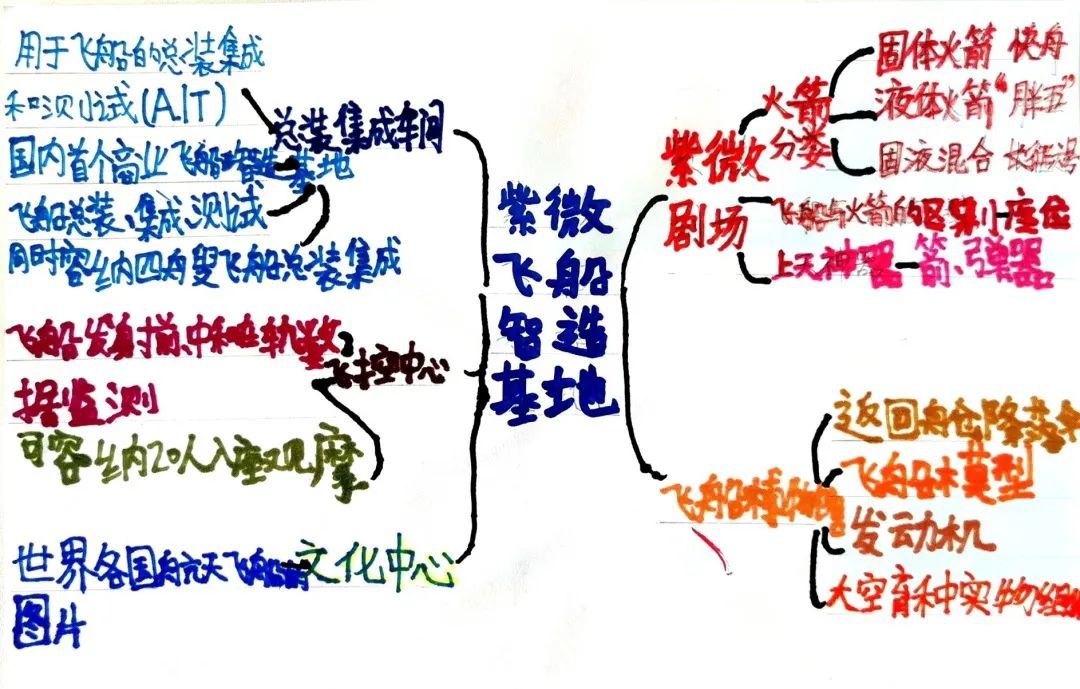 用于飞船的总装集成
和测试(AIT)
总装集成车间
国内首个商业飞船智造基地
飞船总装、集成测试
同时容纳四艘飞船总装集成
飞船发射前、中和在轨数
据监测
飞控中心
可容纳20人入座观摩
世界各国航天飞船
图片
文化中心
紫微
飞船
智造
基地
紫微
剧场
火箭
分类
固体火箭 快舟
液体火箭“胖五”
固液混合 长征
飞船与火箭的区别
座位
上天神器
箭、弹、器
飞船博物馆
返回舱降落伞
飞船模型
发动机
太空育种实物